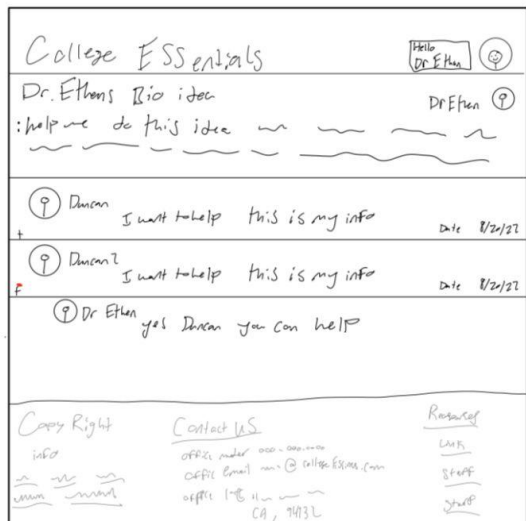 College ESSentials
Hello
Dr Ethan
Dr. Ethans Bio idea
Dr Ethan
: help me do this idea
Duncan
I want to help this is my info
Date 8/20/22
Duncan 2
I want to help this is my info
Date 8/20/22
Dr Ethan
yes Duncan you can help
Copy Right
info
Contact US
office number 000-000-0000
office Email @
office
CA, 94132
Resources
Link
Stuff
Stuff